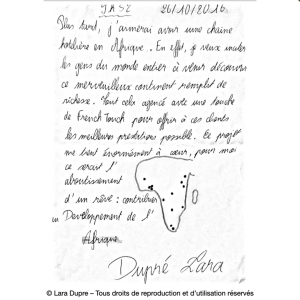 JASZ 26/10/2016
Plus tard, j'aimerai avoir une chaîne
hotelière en Afrique. En effet, je veux inviter
les gens du monde entier à venir découvrir
ce merveilleux continent remplit de
richesse. Tout cela agencé avec une touche
de French Touch pour offrir à ces clients
les meilleurs prestations possible. Ce projet
me tient énormément à cœur, pour moi
ce serait l'
aboutissement
d'un rêve : contribuer
au Developpement de l'
Afrique
Dupré Lara
© Lara Dupre – Tous droits de reproduction et d'utilisation réservés